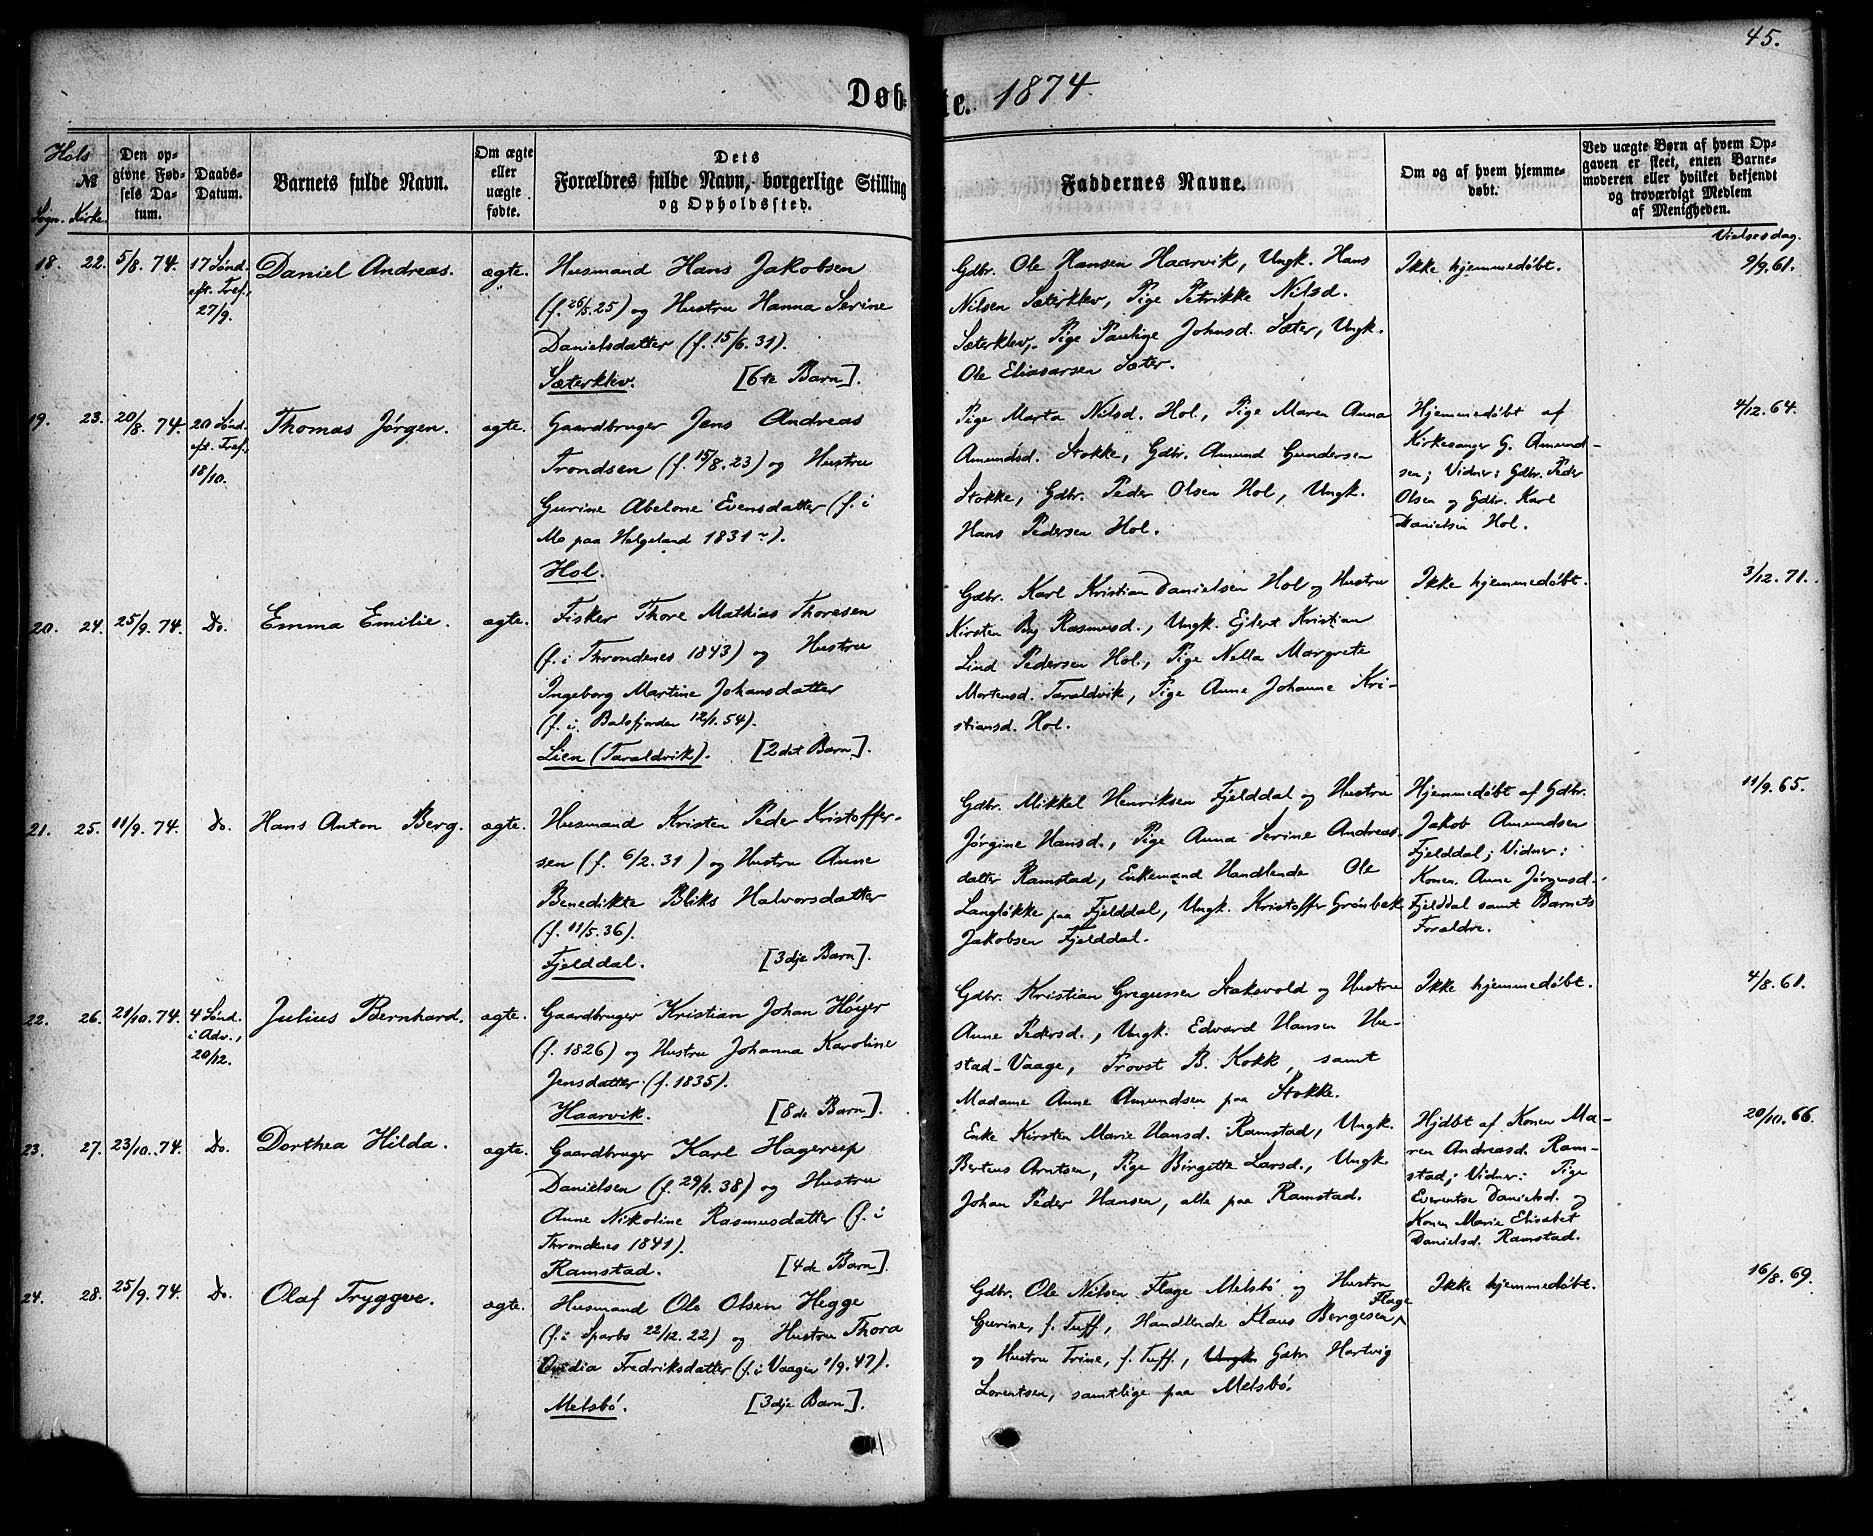 45.
Døbte. 1874.
Hols
Sogn. № Kirke.
Den op-
givne Fød-
sels Da-
tum.
Daabs-
Datum.
Barnets fulde Navn.
Om ægte
eller
uægte
fødte.
Dets
Forældres fulde Navn, borgerlige Stilling
og Opholdssted.
Faddernes Navne.
Om og af hvem hjemme-
døbt.
Ved uægte Børn af hvem Op-
gaven er skeet, enten Barne-
moderen eller hvilket bekjendt
og troværdigt Medlem
af Menigheden.
Vielsesdag.
18. 22. 5/8. 74. 17 Sønd.
eft. Tref.,
27/9.
Daniel Andreas. ægte.
Husmand Hans Jakobsen
(f. 26/5. 25) og Hustru Hanna Serine
Danielsdatter (f. 15/6. 31).
Sæterklev. [6te Barn].
Gdbr. Ole Hansen Haarvik, Ungk. Hans
Nilsen Sæterklev, Pige Petrikke Nilsd.
Sæterklev, Pige Pauline Johnsd. Sæter, Ungk.
Ole Eliasarsen Sæter.
Ikke hjemmedøbt.
9/9. 61.
19. 23. 20/8. 74. 20 Sønd.
eft. Tref.,
18/10.
Thomas Jørgen. ægte.
Gaardbruger Jens Andreas
Trondsen (f. 15/8. 23) og Hustru
Gurine Abelone Evensdatter (f. i
Mo paa Helgeland 1831).
Hol.
Pige Marta Nilsd. Hol, Pige Maren Anna
Amundsd. Stokke, Gdbr. Amund Gundersen
Stokke, Gdbr. Peder Olsen Hol, Ungk.
Hans Pedersen Hol.
Hjemmedøbt af
Kirkesanger G. Amund-
sen; Vidner: Gdbr. Peder
Olsen og Gdbr. Karl
Danielsen Hol.
4/12. 64.
20. 24. 25/9. 74. Do. Emma Emilie. ægte.
Fisker Thore Mathias Thoresen
(f. i Throndenes 1843) og Hustru
Ingeborg Martine Johansdatter
(f. i Balsfjorden 12/1. 54).
Lien (Taraldvik). [2det Barn].
Gdbr. Karl Kristian Danielsen Hol og Hustru
Kirsten Rasmusd., Ungk. Ejlert Kristian
Lind Pedersen Hol, Pige Nella Margrete
Mortensd. Taraldvik, Pige Anne Johanne Kri-
stiansd. Hol.
Ikke hjemmedøbt.
3/12. 71.
21. 25. 11/9. 74. Do. Hans Anton Berg. ægte.
Husmand Kristen Peder Kristoffer-
sen (f. 6/2. 31) og Hustru Anne
Benedikte Bliks Halvorsdatter
(f. 11/5. 36).
Fjelddal. [3dje Barn].
Gdbr. Mikkel Henriksen Fjelddal og Hustru
Jørgine Hansd., Pige Anna Serine Andreas-
datter Ramstad, Enkemand Handlende Ole
Langløkke paa Fjelddal, Ungk. Kristoffer Grønbek
Jakobsen Fjelddal.
Hjemmedøbt af Gdbr.
Jakob Amundsen
Fjelddal; Vidner:
Konen Anne Jørgensd.
Fjelddal samt Barnets
Forældre.
11/9. 65.
22. 26. 21/10. 74. 4 Sønd.
i Adv.,
20/12.
Julius Bernhard. ægte.
Gaardbruger Kristian Johan Høyer
(f. 1826) og Hustru Johanna Karoline
Jensdatter (f. 1835).
Haarvik. [8de Barn].
Gdbr. Kristian Gregussen Stakevold og Hustru
Anne Pedersd., Ungk. Edvard Hansen Hu-
stad-Vaage, Provst B. Kokk, samt
Madame Anne Amundsen paa Stokke.
Ikke hjemmedøbt.
4/8. 61.
23. 27. 23/10. 74. Do. Dorthea Hilda. ægte.
Gaardbruger Karl Hagerup
Danielsen (f. 29/9. 38) og Hustru
Anne Nikoline Rasmusdatter (f. i
Throndenes 1841).
Ramstad. [4de Barn].
Enke Kirsten Marie Hansd. Ramstad, Ungk.
Berteus Arntsen, Pige Birgitte Larsd., Ungk.
Johan Peder Hansen, alle paa Ramstad.
Hjdbt af Konen Ma-
ren Andreasd. Ram-
stad; Vidner: Pige
Everentse Danielsd. og
Konen Marie Elisabet
Danielsd. Ramstad.
20/10. 66.
24. 28. 25/9. 74. Do. Olaf Tryggve. ægte.
Husmand Ole Olsen Hegge
(f. i Sparbo 22/12. 22) og Hustru Thora
Ovidia Fredriksdatter (f. i Vaagen 1/9. 47).
Melsbø. [3dje Barn].
Gdbr. Ole Nilsen Flage Melsbø og Hustru
Gurine, f. Tuff, Handlende Klaus Bergesen Flage
og Hustru Trine, f. Tuff., Ungk. Gdbr. Hartvig
Lorentsen, samtlige paa Melsbø.
Ikke hjemmedøbt.
16/8. 69.